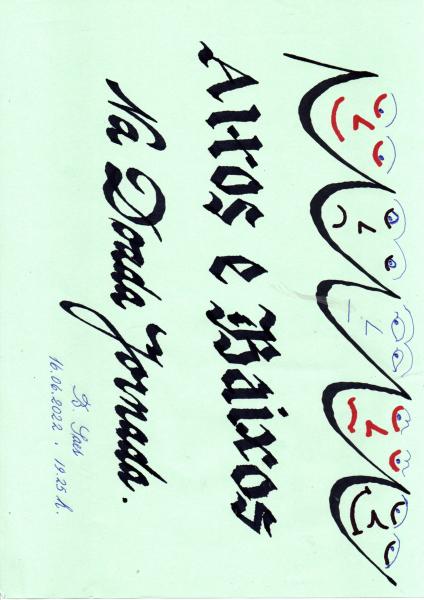 Altos e Baixos
Na Donda Jornada.
16.06.2022, 19.25 h.